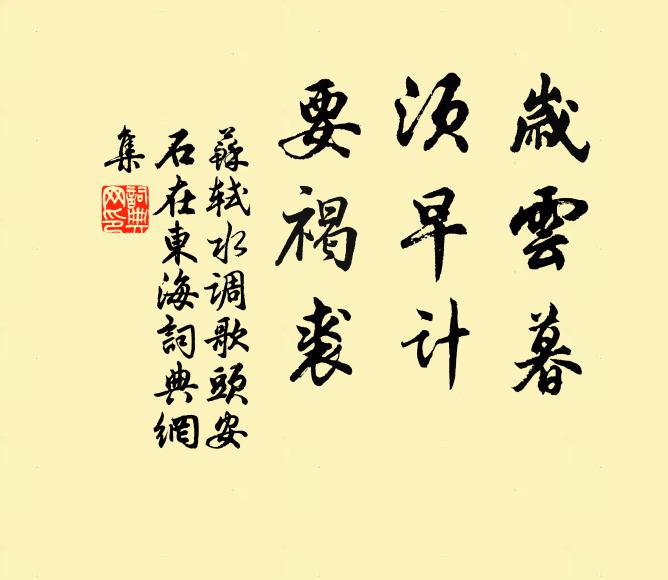 歲雲暮
須早計
要褐裘
蘇軾水调歌頭安
石在東海詞典網
集
詞典網印